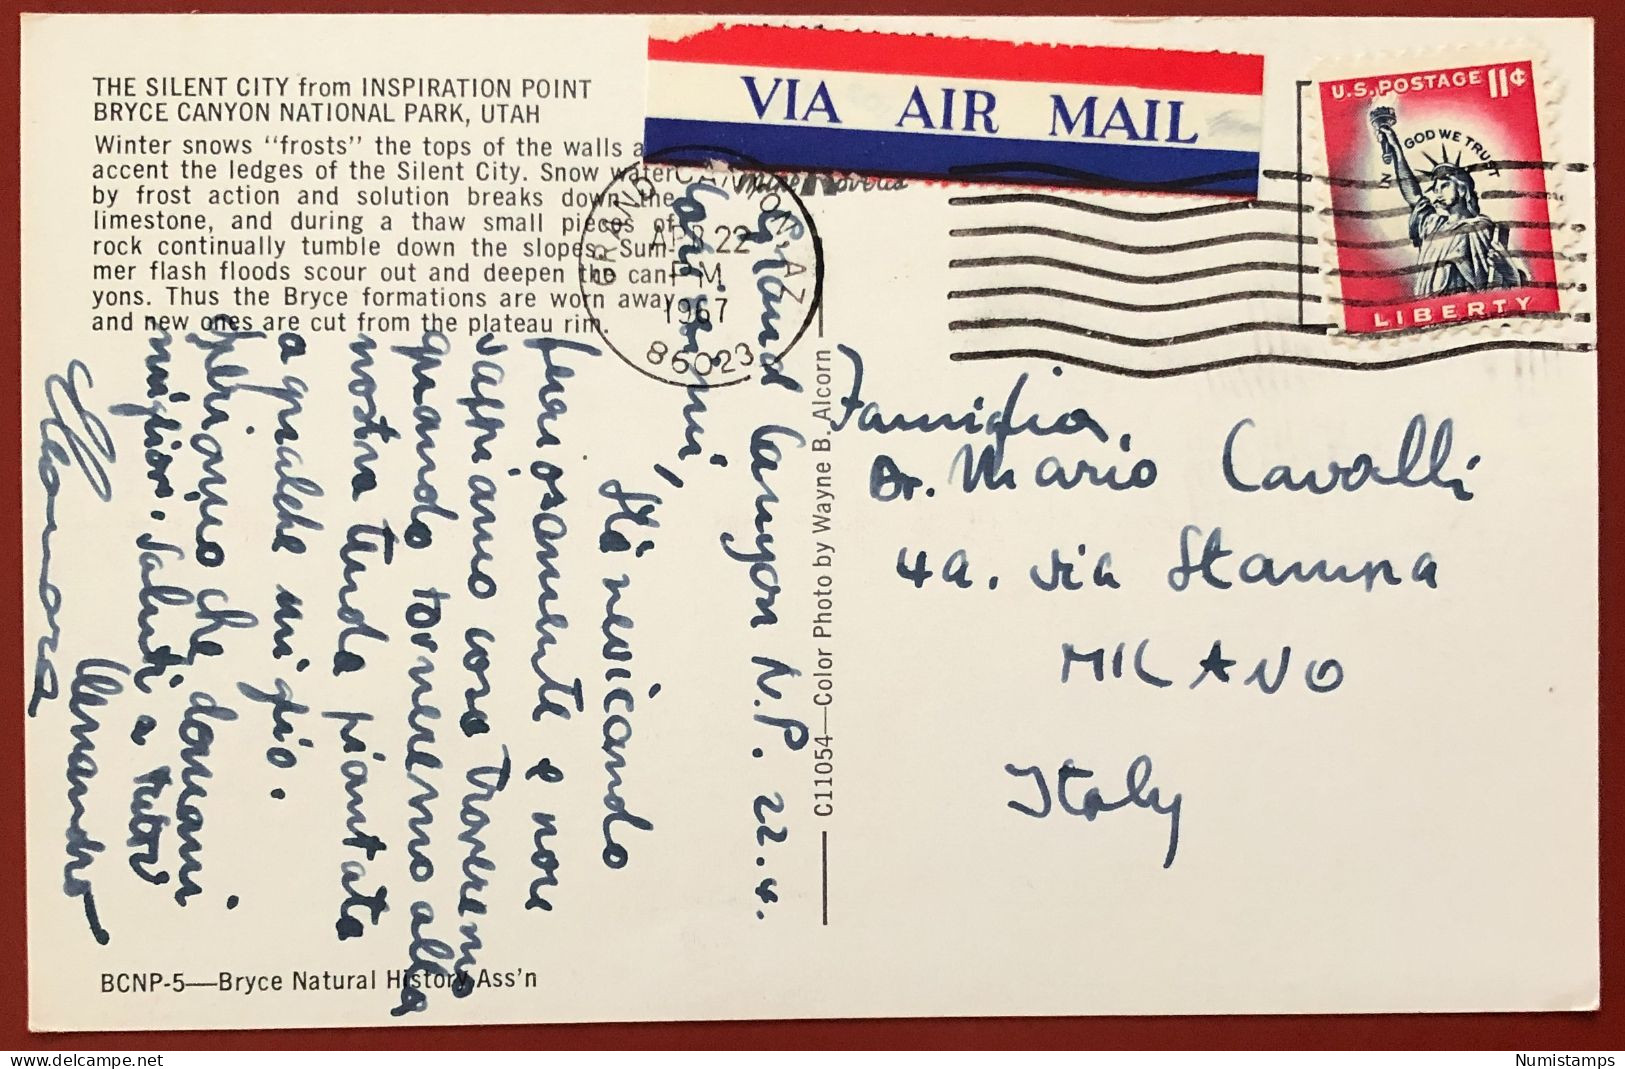 THE SILENT CITY from INSPIRATION POINT
BRYCE CANYON NATIONAL PARK, UTAH
Winter snows "frosts" the tops of the walls a
accent the ledges of the Silent City. Snow water
by frost action and solution breaks down the
limestone, and during a thaw small pieces of
rock continually tumble down the slopes. Sum-
mer flash floods scour out and deepen the can-
yons. Thus the Bryce formations are worn away
and new ones are cut from the plateau rim.
VIA AIR MAIL
U.S. POSTAGE 11¢
IN GOD WE TRUST
LIBERTY
GRAND CANYON, AZ
APR 22
PM
1967
86023
Grand Canyon N.P. 22.4.
Carissimi,
Stà nevicando
furiosamente e non
sappiamo cosa troveremo
quando torneremo alla
nostra tenda piantata
a qualche miglio.
Speriamo che domani
migliori. Saluti a tutti
Famiglia
Dr. Mario Cavalli
4a. via Stampa
MILANO
Italy
C11054—Color Photo by Wayne B. Alcorn
BCNP-5—Bryce Natural History Ass'n
Numistamps
delcampe.net